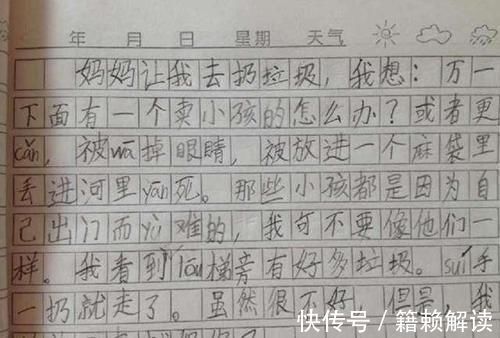 年 月 日 星期 天气
妈妈让我去扔垃圾，我想：万一
下面有一个卖小孩的怎么办？或者更
cǎn，被wā掉眼睛，被放进一个麻袋里
丢进河里yān死。那些小孩都是因为自
己出门而yù难的，我可不要像他们一
样。我看到lóu梯旁有好多垃圾。suí手
一扔就走了。虽然很不好，但是，我
快传号／籍赖解读